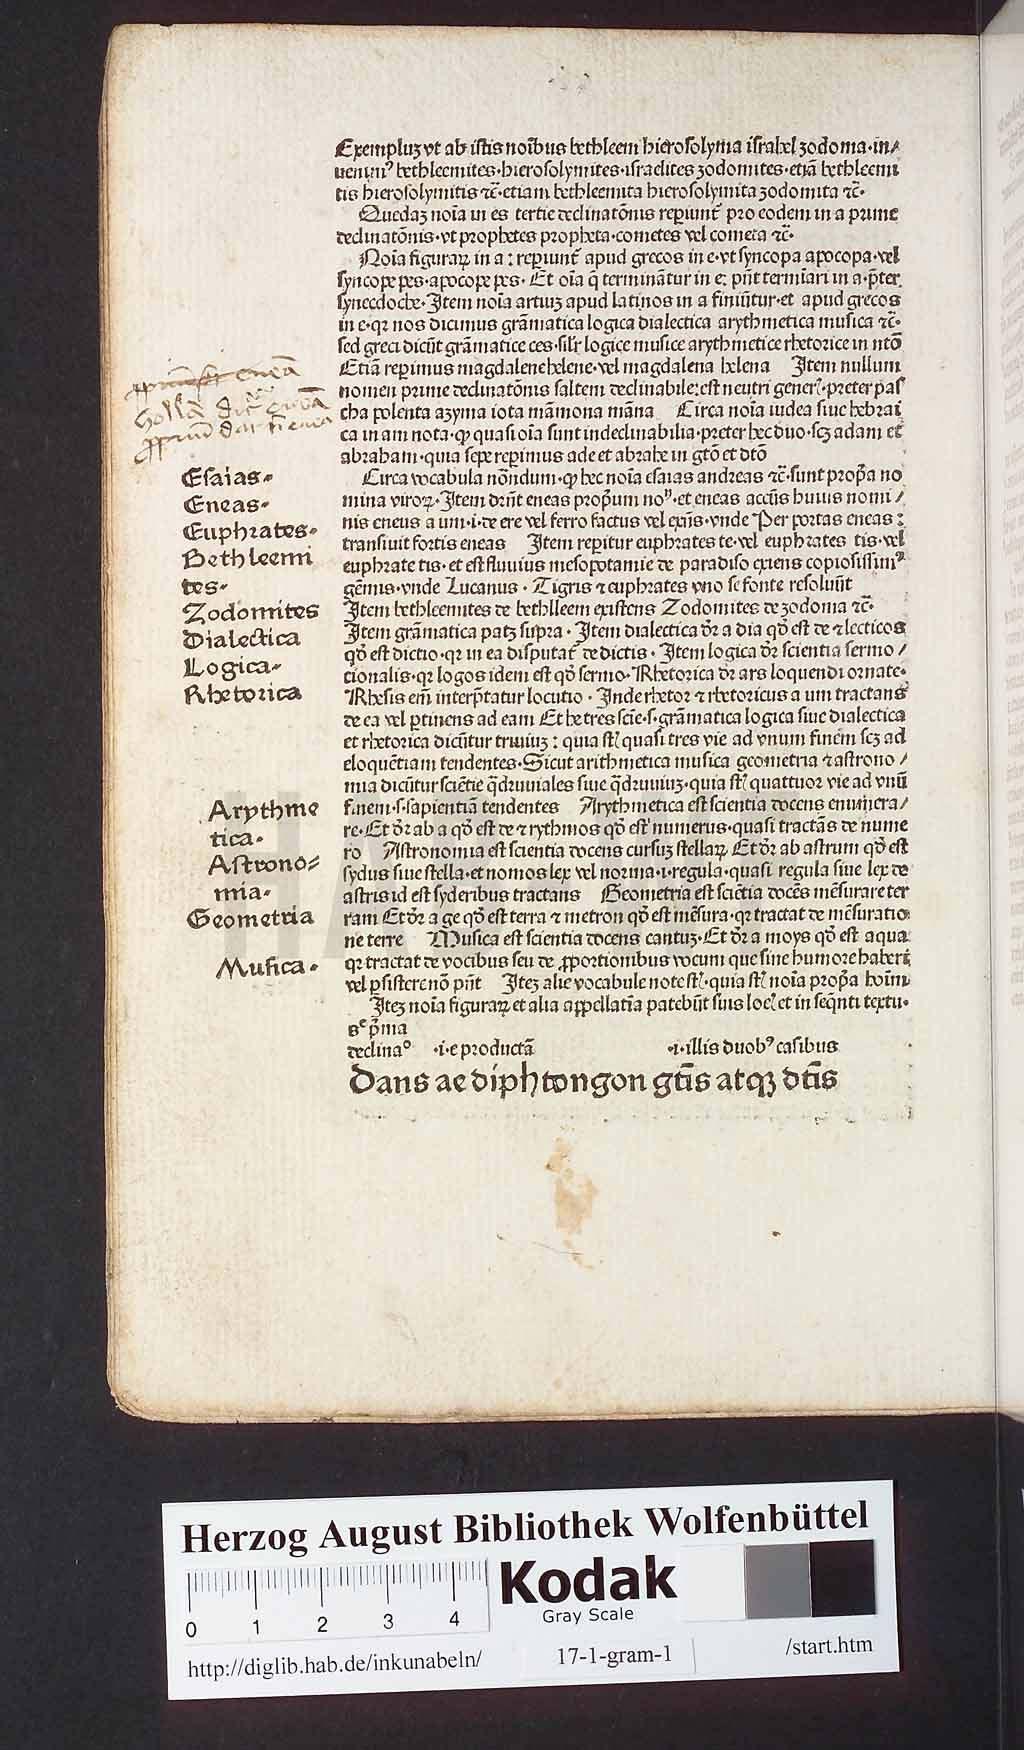 Exempluꝫ vt ab istis noībus bethleem hierosolyma israhel zodoma·in/
uenimꝰ bethleemites·hierosolymites·israelites zodomites·etiā bethleemi
tis hierosolymitis ⁊c̄·etiam bethleemita hierosolymita zodomita ⁊c̄·
Quedaꝫ noīa in es tertie declinatōnis reperiunt᷑ pro eodem in a prime
declinatōnis·vt prophetes propheta·cometes vel cometa ⁊c̄·
Noīa figuraꝝ in a : reperiunt᷑ apud grecos in e·vt syncopa apocopa·vel
syncope pes·apocope pes· Et oīa q̄ terminātur in e: pn̄t termīari in a·p̄ter
synecdoche·Item noīa artiuꝫ apud latinos in a finiūtur·et apud grecos
in e·qꝛ nos dicimus grāmatica logica dialectica arythmetica musica ⁊c̄·
sed greci dicūt grāmatice ces·silr̄ logice musice arythmetice rhetorice in ntō
Etiā reperimus magdalene helene·vel magdalena helena Item nullum
nomen prime declinatōnis saltem declinabile:est neutri generꝭ·preter pas
cha polenta azyma iota māmona māna Circa noīa iudea siue hebrai
ca in am nota·ꝙ quasi oīa sunt indeclinabilia·preter hec duo·scꝫ adam et
abraham·quia sepe reperimus ade et abrahe in gtō et dtō
Circa vocabula nōndum·ꝙ hec noīa esaias andreas ⁊c̄·sunt prop̄a no
mina viroꝝ·Item drn̄t eneas prop̄um noⁿ·et eneas accūs huius nomi/
nis eneus a um·i·de ere vel ferro factus vel exn̄s·vnde Per portas eneas:
transiuit fortis eneas Item reperitur euphrates te·vel euphrates tis·vel
euphrate tis·et est fluuius mesopotamie de paradiso exiens copiosissimꝰ
gēmis·vnde Lucanus · Tigris ⁊ euphrates vno se fonte resoluūt
Item bethleemites de bethlleem existens Zodomites de zodoma ⁊c̄·
Item grāmatica patꝫ supra·Item dialectica dr̄ a dia qd̄ est de ⁊ lecticos
qd̄ est dictio·qꝛ in ea disputat᷑ de dictis·Item logica dr̄ scientia sermo/
cionalis·qꝛ logos idem est qd̄ sermo·Rhetorica dr̄ ars loquendi ornate·
Rhesis em̄ interp̄tatur locutio·Inde rhetor ⁊ rhetoricus a um tractans
de ea vel ꝑtinens ad eam Et he tres scīe·s·grāmatica logica siue dialectica
et rhetorica dicūtur triuiuꝫ : quia st̄ quasi tres vie ad vnum finem scꝫ ad
eloquētiam tendentes·Sicut arithmetica musica geometria ⁊ astrono/
mia dicūtur sciētie q̄druuiales siue q̄druuiuꝫ·quia st̄ quattuor vie ad vnū
finem·s·sapientiā tendentes Arythmetica est scientia docens enumera/
re·Et dr̄ ab a qd̄ est de ⁊ rythmos qd̄ est numerus·quasi tractās de nume
ro Astronomia est scientia docens cursuꝫ stellaꝝ Et dr̄ ab astrum qd̄ est
sydus siue stella·et nomos lex vel norma·i·regula·quasi regula siue lex de
astris id est syderibus tractans Geometria est sciētia docēs mēsurare ter
ram Et dr̄ a ge qd̄ est terra ⁊ metron qd̄ est mēsura·qꝛ tractat de mēsuratio
ne terre Musica est scientia docens cantuꝫ·Et dr̄ a moys qd̄ est aqua
qꝛ tractat de vocibus seu de ꝓportionibus vocum que sine humore haberi
vel ꝑsistere nō pn̄t Iteꝫ alie vocabule note st̄·quia st̄ noīa prop̄a hoīm
Iteꝫ noīa figuraꝝ et alia appellatīa patebūt suis locꝭ et in seq̄nti textu·
sᶜ p̄ma
declinaº ·i·e productā ·i·illis duobꝰ casibus
Dans ae diphtongon gtīs atqꝫ dtīs
Esaias·
Eneas·
Euphrates·
Bethleemi
tes·
Zodomites
Dialectica
Logica·
Rhetorica
Arythme
tica·
Astrono=
mia·
Geometria
Musica·
Herzog August Bibliothek Wolfenbüttel
Kodak
Gray Scale
0 1 2 3 4
http://diglib.hab.de/inkunabeln/ 17-1-gram-1 /start.htm